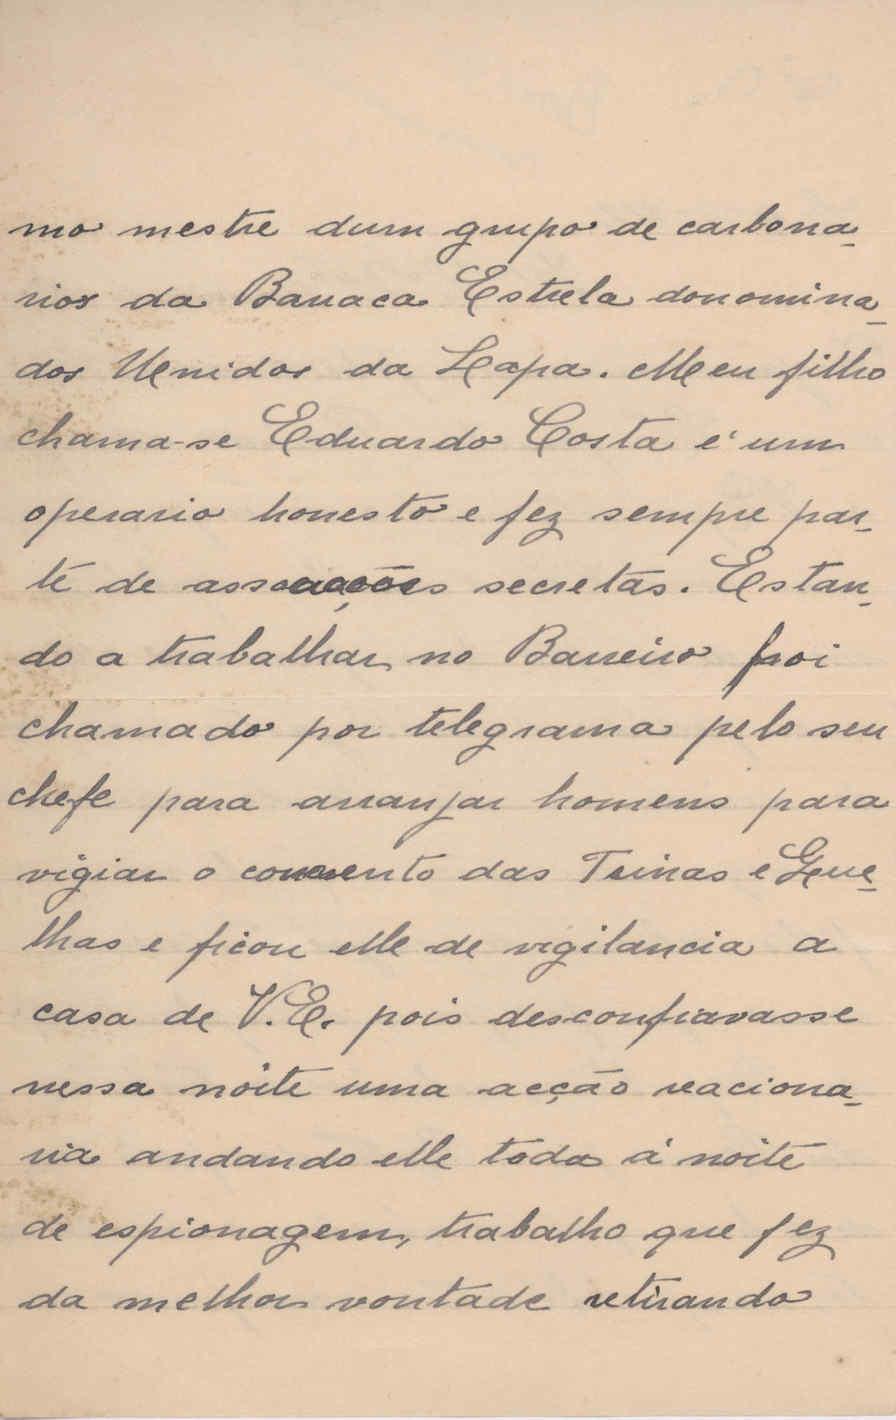 mo mestre dum grupo de carbona-
rios da Barraca Estrela donomina-
dos Unidos da Lapa. Meu filho
chama-se Eduardo Costa é um
operario honesto e fez sempre par-
te de assoacções secretas. Estan-
do a trabalhar no Barreiro foi
chamado por telegrama pelo seu
chefe para arranjar homens para
vigiar o convento das Trinas e Gue-
lhas e ficou elle de vigilancia a
casa de V.E. pois desconfiavasse
nessa noite uma acção reaciona-
ria andando elle toda á noite
de espionagem, trabalho que fez
da melhor vontade retirando